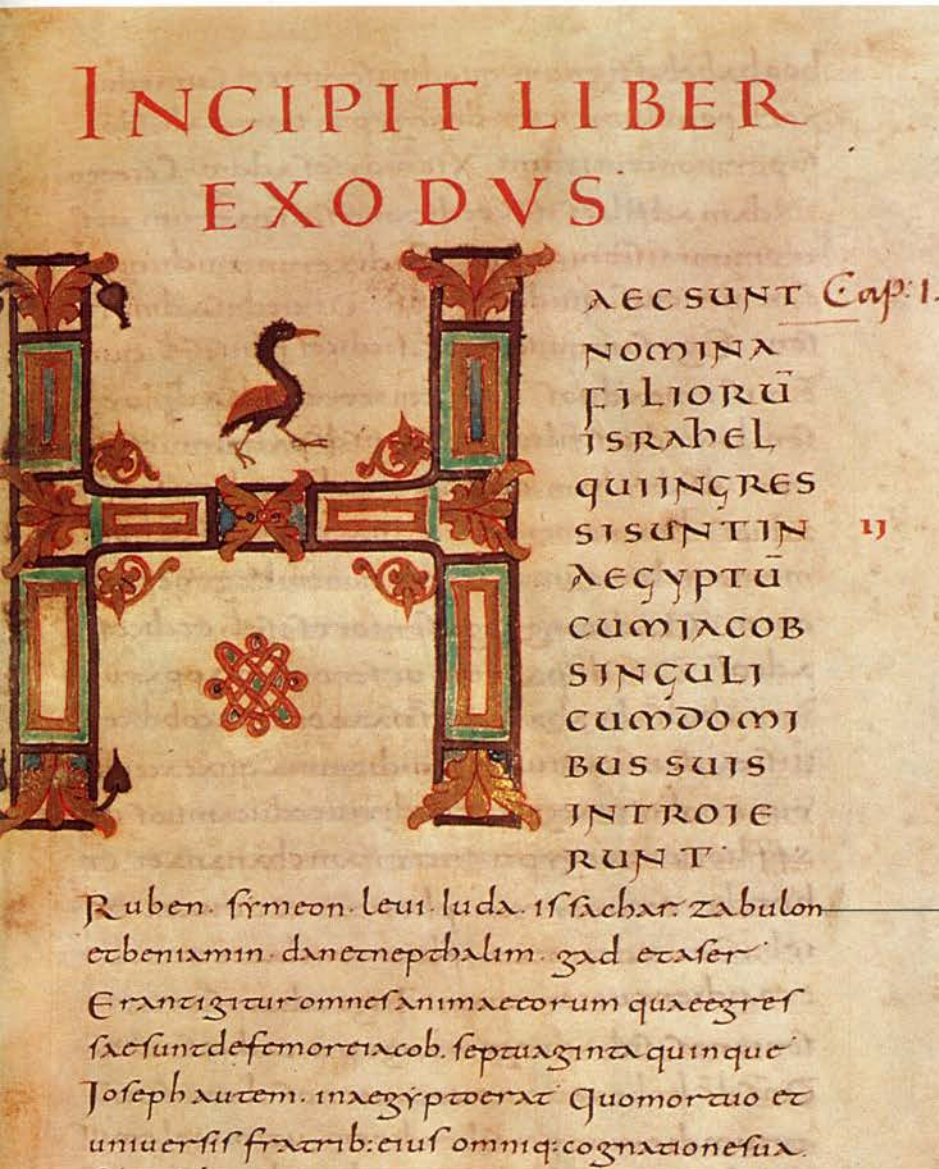 INCIPIT LIBER
EXODVS
AEC SUNT Cap: 1.
NOMINA
FILIORŪ
ISRAHEL
QUI INGRES
SI SUNT IN IJ
AEGYPTŪ
CUM IACOB
SINGULI
CUM DOMI
BUS SUIS
INTROIE
RUNT·
Ruben· symeon· leui· Iuda· issachar· zabulon
et beniamin· dan et nepthalim· gad et aser·
Erant igitur omnes animae eorum quae egres
sae sunt de femore iacob. septuaginta quinque
Ioseph autem. in aegypto erat Quo mortuo et
uniuersis fratrib: eius omniq: cognatione sua.